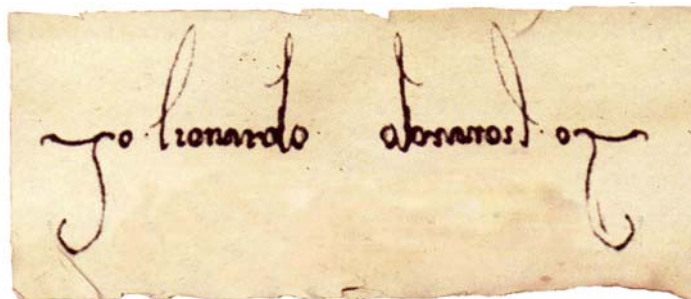 Jo lionardo Jo lionardo